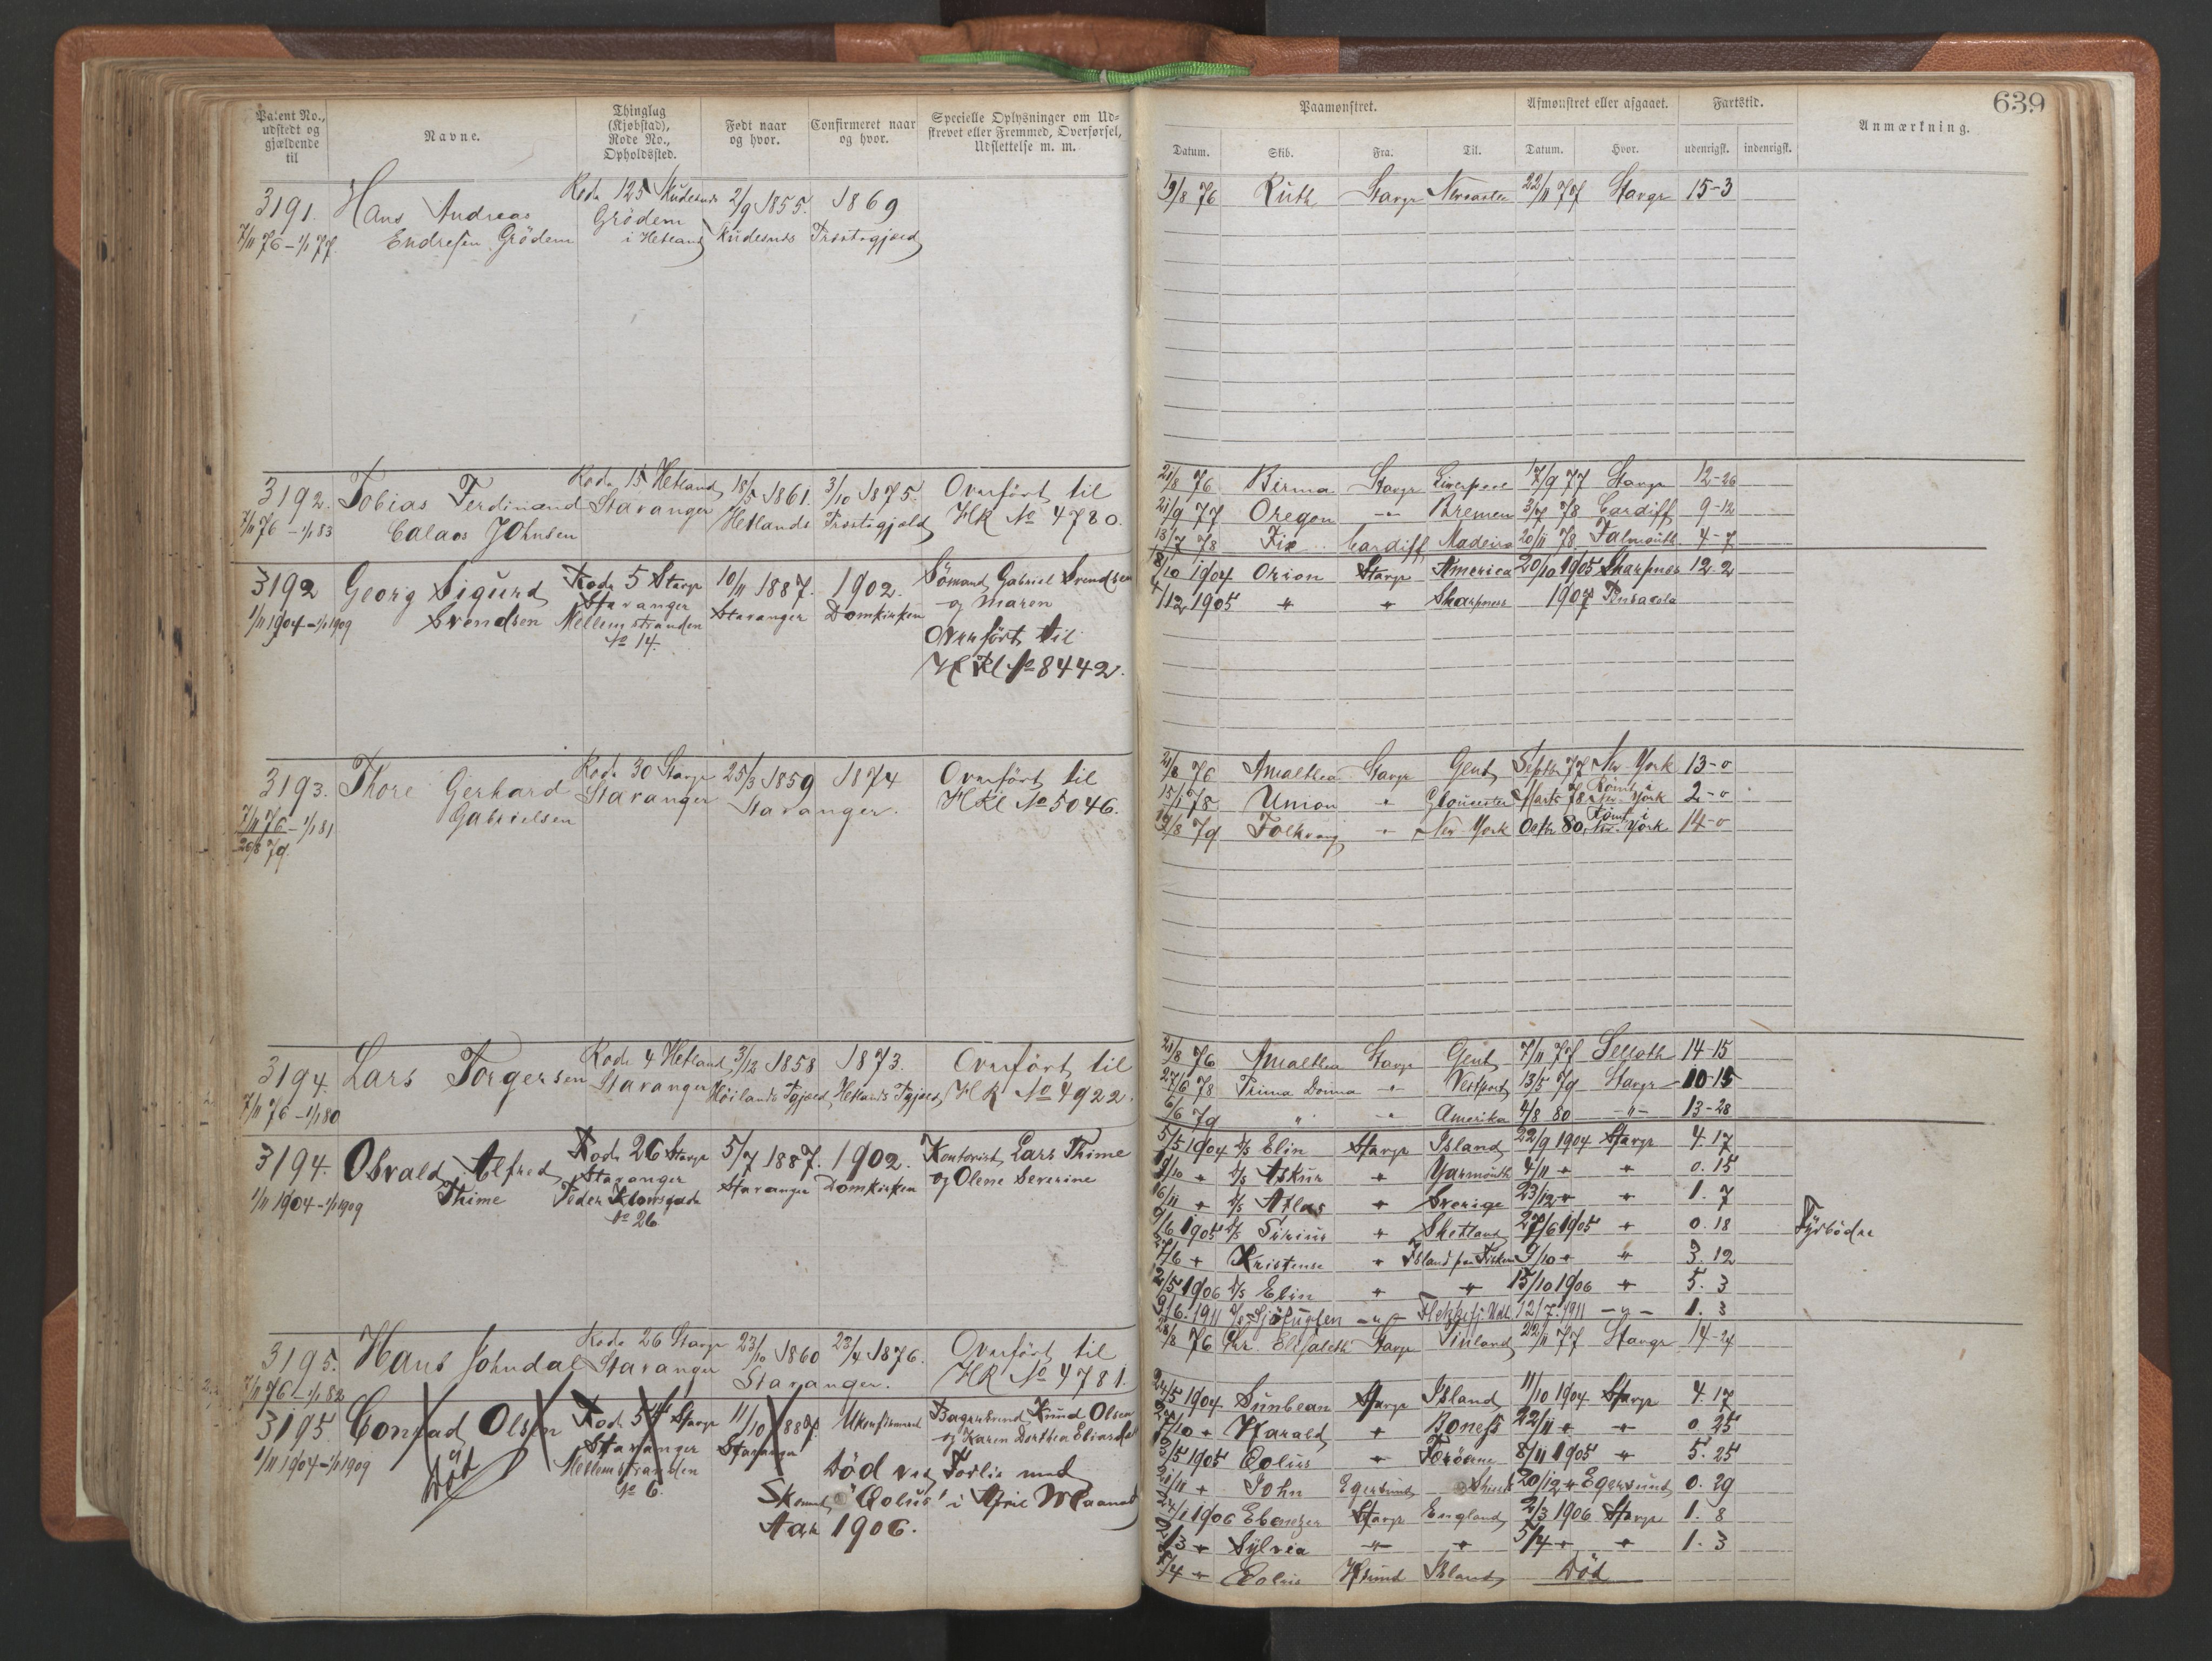 639
Patent No., udstedt og gjældende til
Navne.
Thinglag (Kjøbstad), Rode No., Opholdssted.
Født naar og hvor.
Confirmeret naar og hvor.
Specielle Oplysninger om Udskrevet eller Fremmed, Overførsel, Udslettelse m. m.
Paamønstret.
Datum. Skib. Fra. Til.
Afmønstret eller afgaaet.
Datum. Hvor.
Fartstid.
udenrigsk. indenrigsk.
Anmærkning.
3191. Hans Andreas Rode 125 Skudesnes 2/9 1855. 1869
7/11 76 - 1/1 77. Endresen Grödem Grödem i Hetland Skudesnes
19/8 76 Ruth Stavgr Newcastle 22/11 77 Stavgr 15-3
3192. Tobias Ferdinand Rode 15 Hetland 18/5 1861. 3/10 1875. Overført til
7/11 76 - 1/1 83 Calaos Johnsen Stavanger Hetlands HR No 4780.
21/8 76 Birma Stavgr Liverpool 17/9 77 Stavgr 12-26
21/9 77 Oregon -"- Bremen 3/7 78 Cardiff 9-12
13/7 78 Fix Cardiff Madeira 20/11 78 Falmouth 4-7
3192 Georg Sigurd Rode 5 Stavgr 10/11 1887. 1902. Sömand Gabriel Svendsen
1/11 1904 - 1/1 1909 Svendsen Stavanger Stavanger Domkirken og Maren
Mellemstranden No 14.
Overført til
HRl No 8442.
18/10 1904 Orion Stavgr America 20/10 1905 Sharpnes 12-2
4/12 1905 " " Sharpnes 1907 Pensacola
3193. Thore Gerhard Rode 30 Stavgr 25/3 1859 1874 Overført til
7/11 76 - 1/1 81 Gabrielsen Stavanger Stavanger. HRl No 5046.
26/8 79.
21/8 76 Amalthea Stavgr Gent Septbr 77 New York 13-0
15/1 78 Union " Gloucester Marts 78 Römt i New York 2-0
19/8 79 Folkvang " New York Octbr 80 Römt i New York 14-0
3194. Lars Torgersen Rode 4 Hetland 3/12 1858 1873. Overført til
7/11 76 - 1/1 80 Stavanger Höilands Pgjæld Hetlands Pgjæld HR No 4922.
21/8 76 Amalthea Stavgr Gent 7/11 77 Silloth 14-15
27/6 78 Prima Donna -"- Vestport 13/5 79 Stavgr 10-15
6/6 79 " -"- Amerika 4/8 80 -"- 13-28
3194. Osvald Alfred Rode 26 Stavgr 5/7 1887. 1902. Kontorist Lars Thime
1/11 1904 - 1/1 1909 Thime Stavanger Stavanger Domkirken og Olene Severine
Peder Klowsgade No 26
5/5 1904 D/S Elin Stavgr Island 22/9 1904 Stavgr 4. 17
19/10 " D/S Askur " Yarmouth 4/11 " " 0. 15
16/11 " D/S Atlas " Sverige 23/12 " " 1. 7
9/6 1905 D/S Sirius " Shetland 27/6 1905 " 0. 18 Fyrböder
27/6 " Kristense " Island paa Fiskeri 9/10 " " 3. 12
12/5 1906 D/S Elin " " 15/10 1906 " 5. 3
9/6. 1911 12/7. 1911 -"- 1. 3
3195. Hans Johndal Rode 26 Stavgr 23/10 1860 23/4 1876. Overført til
7/11 76 - 1/1 82 Stavanger Stavanger. HR No 4781.
28/8 76 Chr. Elisabeth Stavgr Finland 22/11 77 Stavgr 14-24
3195. Conrad Olsen Rode 5 Stavgr 11/10 1887. Ukonfirmeret Knud Olsen
1/11 1904 - 1/1 1909 Stavanger Stavanger og Karen Dorthea
Død Mellemstranden No 6.
Død ved Forlis med
Skonnert "Eolus" i April Maaned
Aar 1906.
24/5 1904 Sunbean Stavgr Island 11/10 1904 Stavgr 4. 17
27/10 " Harald " Boness 22/11 " " 0. 25
13/5 1905 Eolus " Færöerne 8/11 1905 " 5. 25
21/11 " John Egersund 20/12 " Egersund 0. 29
24/1 1906 Ebenezer Stavgr England 2/3 1906 Stavgr 1. 8
2/3 " Sylvia " " 5/4 " " 1. 3
17/4 " Eolus Island Død